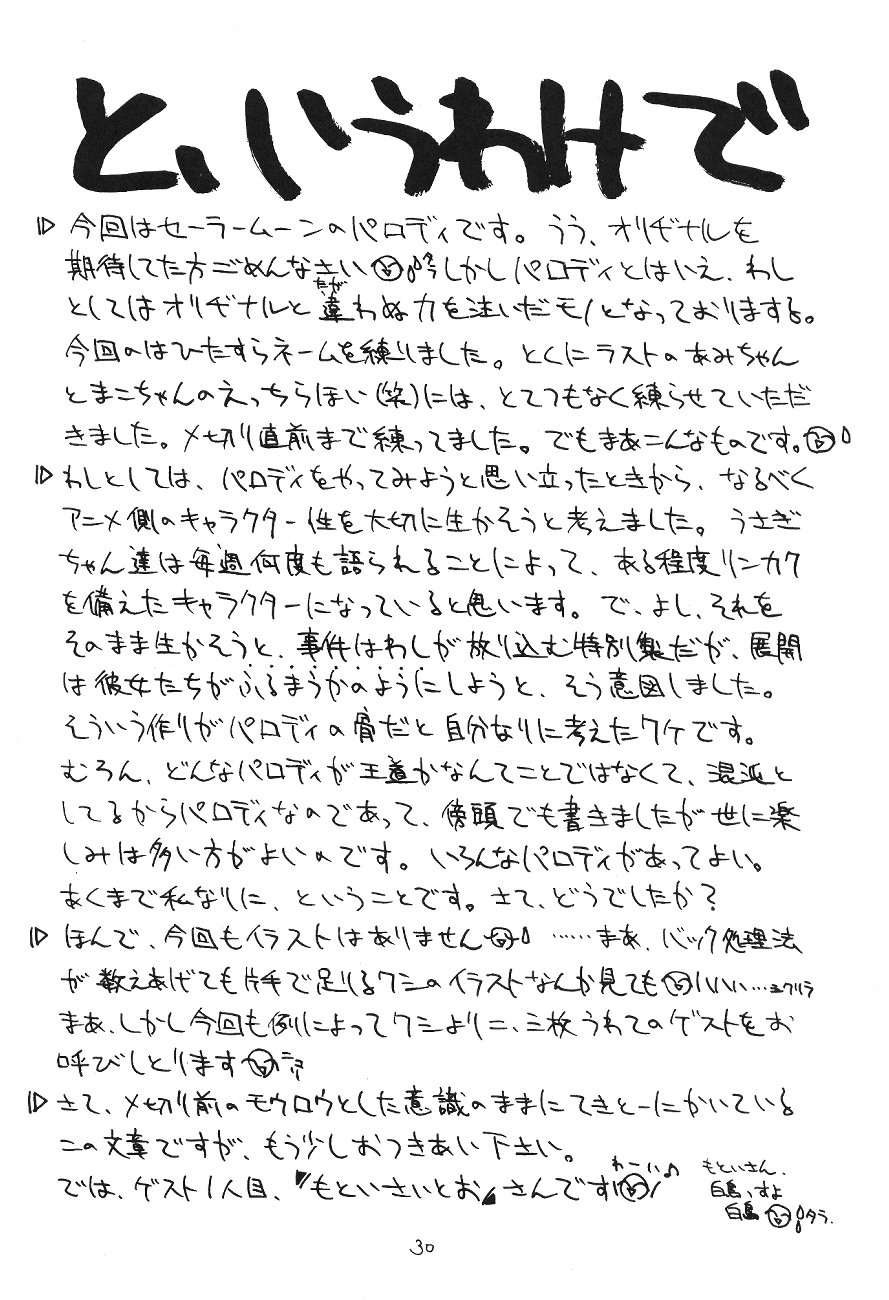 というわけで
今回はセーラームーンのパロディです。うう、オリヂナルを
期待してた方ごめんなさい しかしパロディとはいえ、わし
としてはオリヂナルと違わぬ力を注いだモノとなっておりまする。
たが
今回のはひたすらネームを練りました。とくにラストのあみちゃん
とまこちゃんのえっちらほい(笑)には、とてつもなく練らせていただ
きました。〆切り直前まで練ってました。でもまあこんなものです。
わしとしては、パロディをやってみようと思い立ったときから、なるべく
アニメ側のキャラクター性を大切に生かそうと考えました。うさぎ
ちゃん達は毎週何度も語られることによって、ある程度リンカク
を備えたキャラクターになっていると思います。で、よし、それを
そのまま生かそうと、事件はわしが放り込む特別製だが、展開
は彼女たちがふるまうかのようにしようと、そう意図しました。
そういう作りがパロディの骨だと自分なりに考えたワケです。
むろん、どんなパロディが王道かなんてことではなくて、混沌と
してるからパロディなのであって、傍頭でも書きましたが世に楽
しみは多い方がよいのです。いろんなパロディがあってよい。
あくまで私なりに、ということです。さて、どうでしたか？
ほんで、今回もイラストはありません ……まあ、バック処理法
が数えあげても片手で足りるワシのイラストなんか見ても
まあ、しかし今回も例によってワシより二、三枚うわてのゲストをお
呼びしとります
さて、〆切り前のモウロウとした意識のままにてきとーにかいている
この文章ですが、もう少しおつきあい下さい。
では、ゲスト1人目、〝もといさいとお〟さんです!
わーい♪
もといさん、
白鳥っすよ
白鳥 タラ.
30